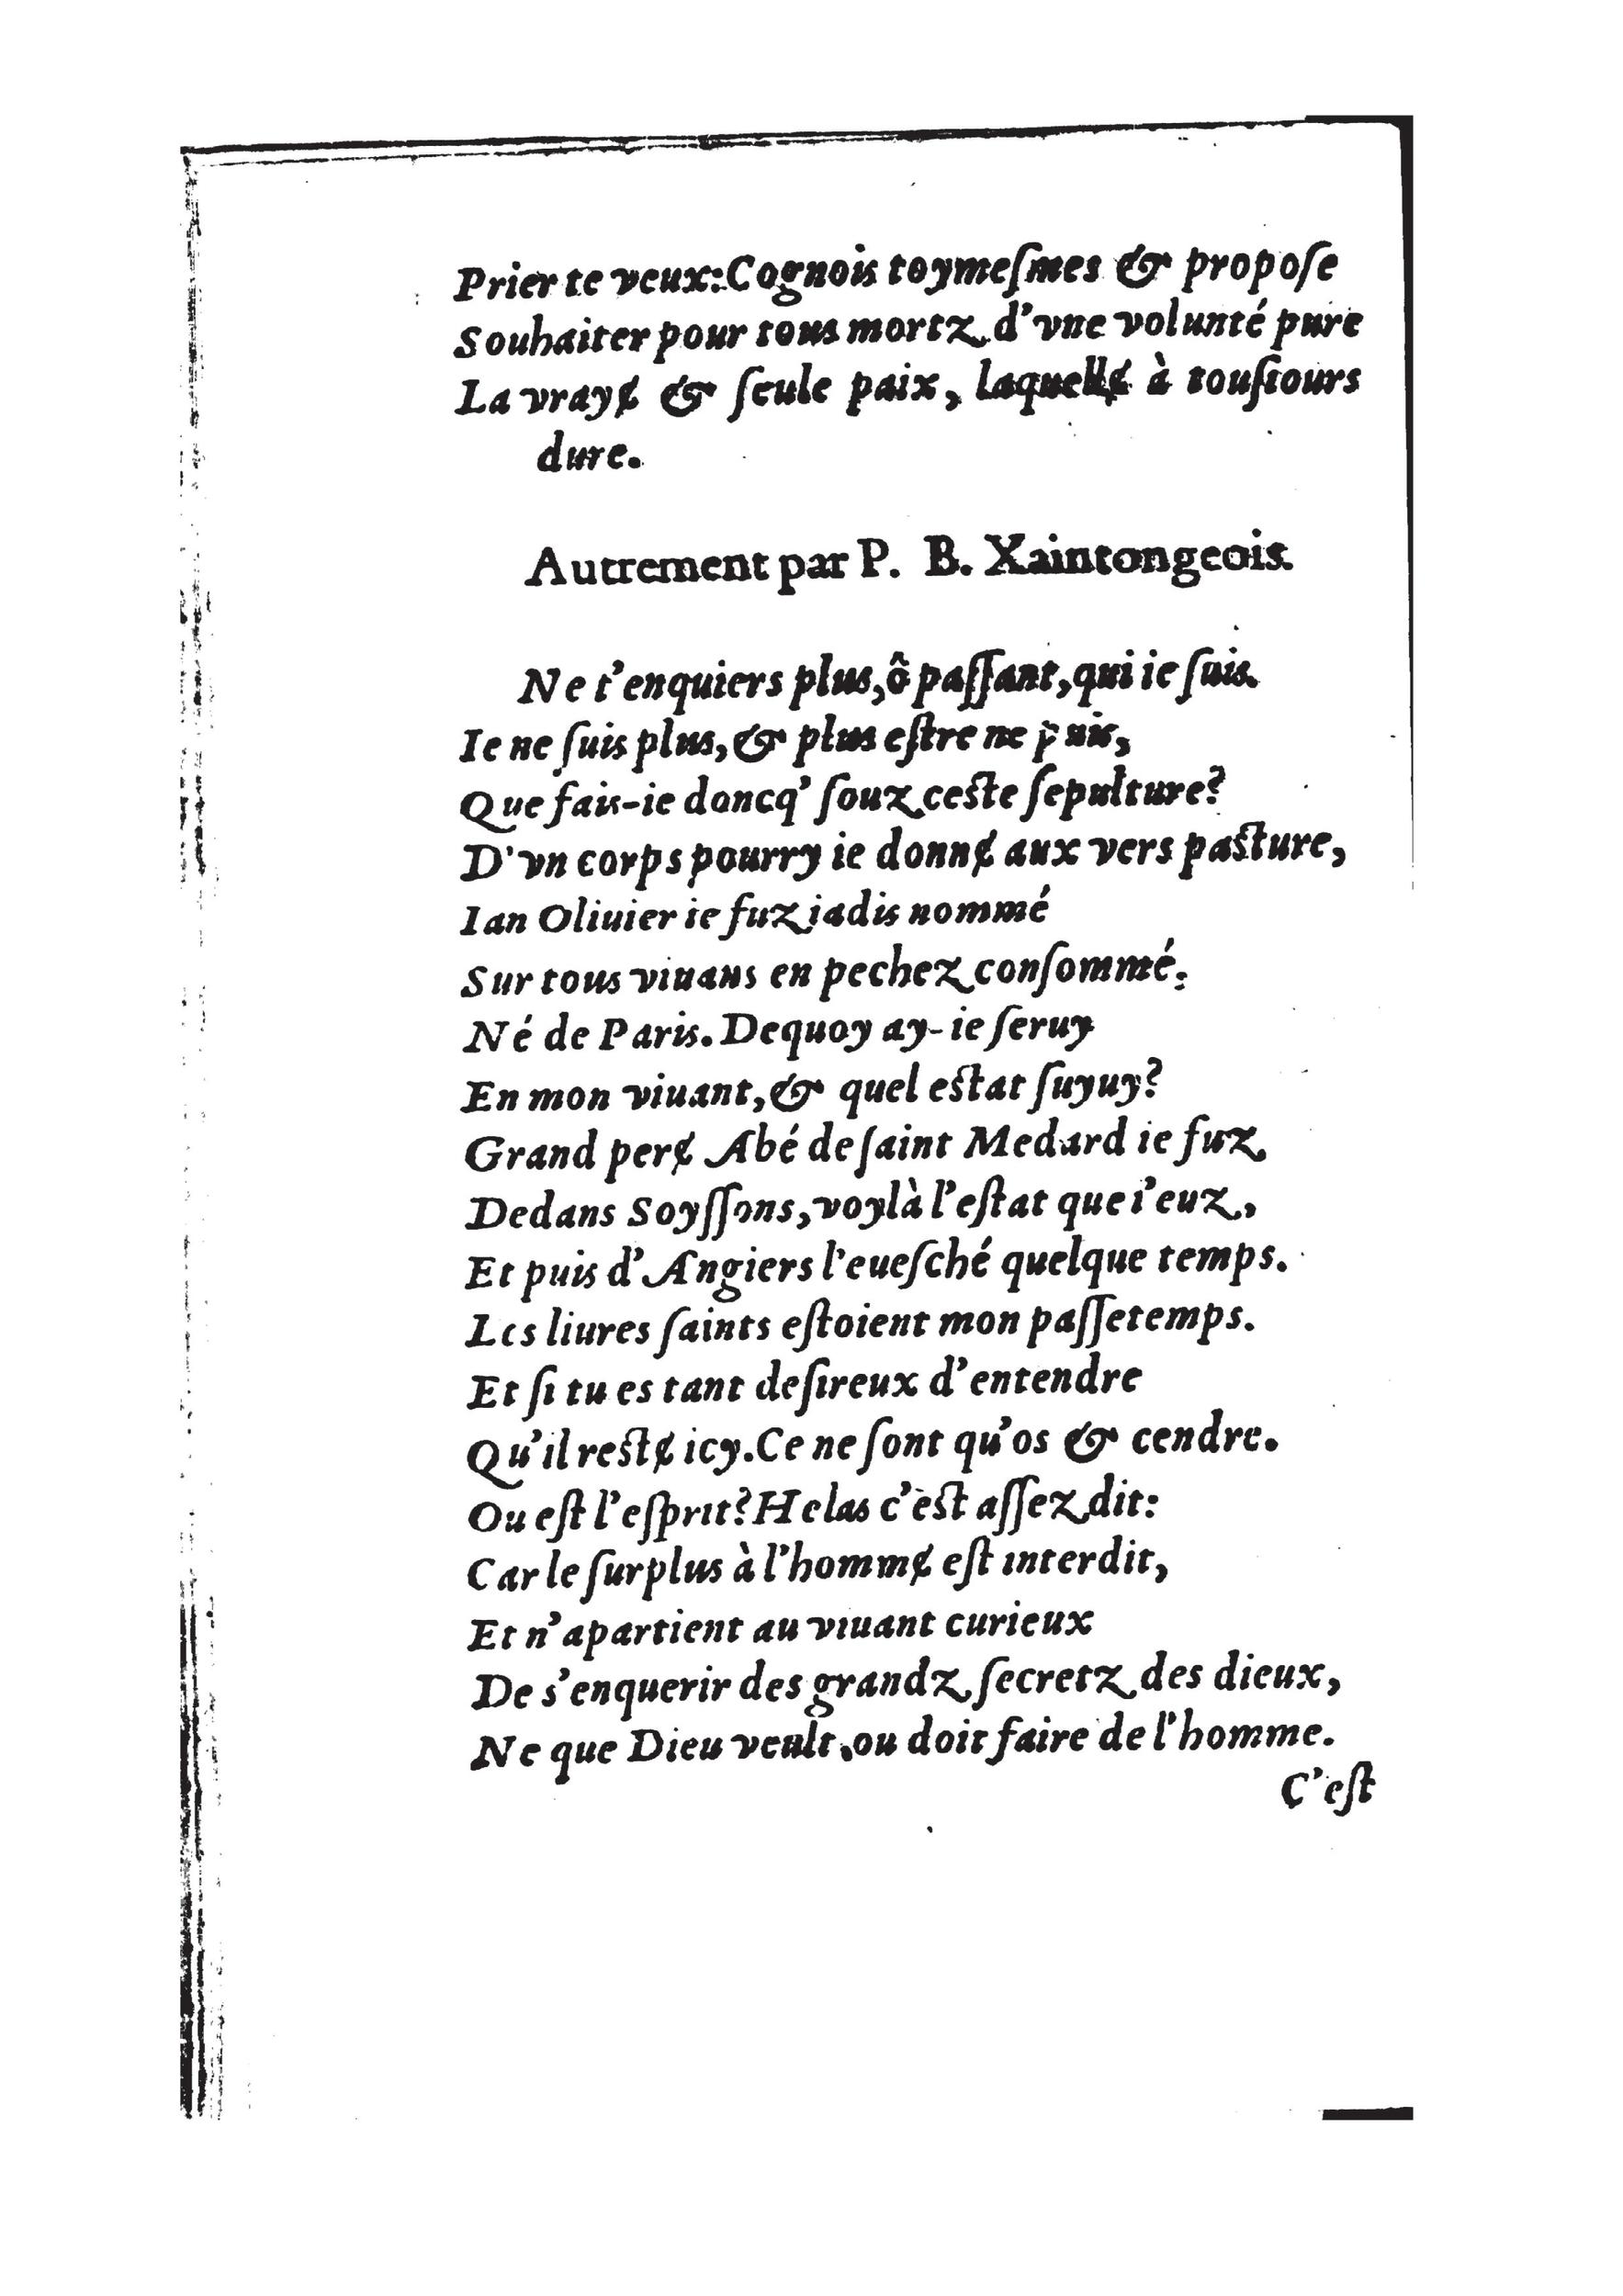 Prier te veux: Cognois toymeſmes & propoſe
Souhaiter pour tous mortz d'vne volunté pure
La vrayɇ & ſeule paix, laquellɇ à touſiours
dure.
Autrement par P. B. Xaintongeois.
Ne t'enquiers plus, ô paſſant, qui ie ſuis.
Ie ne ſuis plus, & plus eſtre ne puis,
Que fais-ie doncq' ſouz ceſte ſepulture?
D'vn corps pourry ie donnɇ aux vers paſture,
Ian Oliuier ie fuz iadis nommé
Sur tous viuans en pechez conſommé:
Né de Paris. Dequoy ay-ie ſeruy
En mon viuant, & quel eſtat ſuyuy?
Grand perɇ Abé de ſaint Medard ie fuz
Dedans Soyſſons, voylà l'eſtat que i'euz,
Et puis d'Angiers l'eueſché quelque temps.
Les liures ſaints eſtoient mon paſſetemps.
Et ſi tu es tant deſireux d'entendre
Qu'il reſtɇ icy. Ce ne ſont qu'os & cendre.
Ou eſt l'eſprit? Helas c'eſt aſſez dit:
Car le ſurplus à l'hommɇ eſt interdit,
Et n'apartient au viuant curieux
De s'enquerir des grandz ſecretz des dieux,
Ne que Dieu veult, ou doit faire de l'homme.
C'eſt